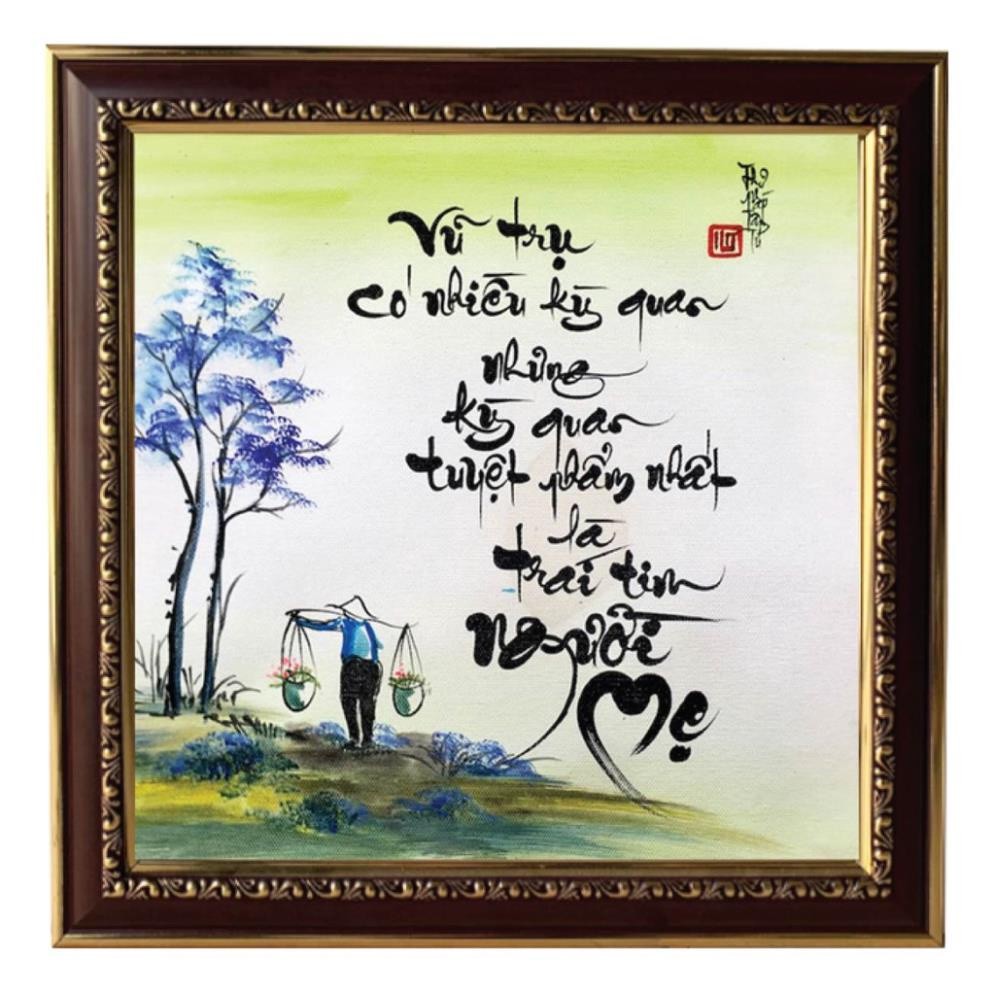 Vũ trụ
có nhiều kỳ quan
nhưng
kỳ quan
tuyệt phẩm nhất
là
trái tim
người
Mẹ